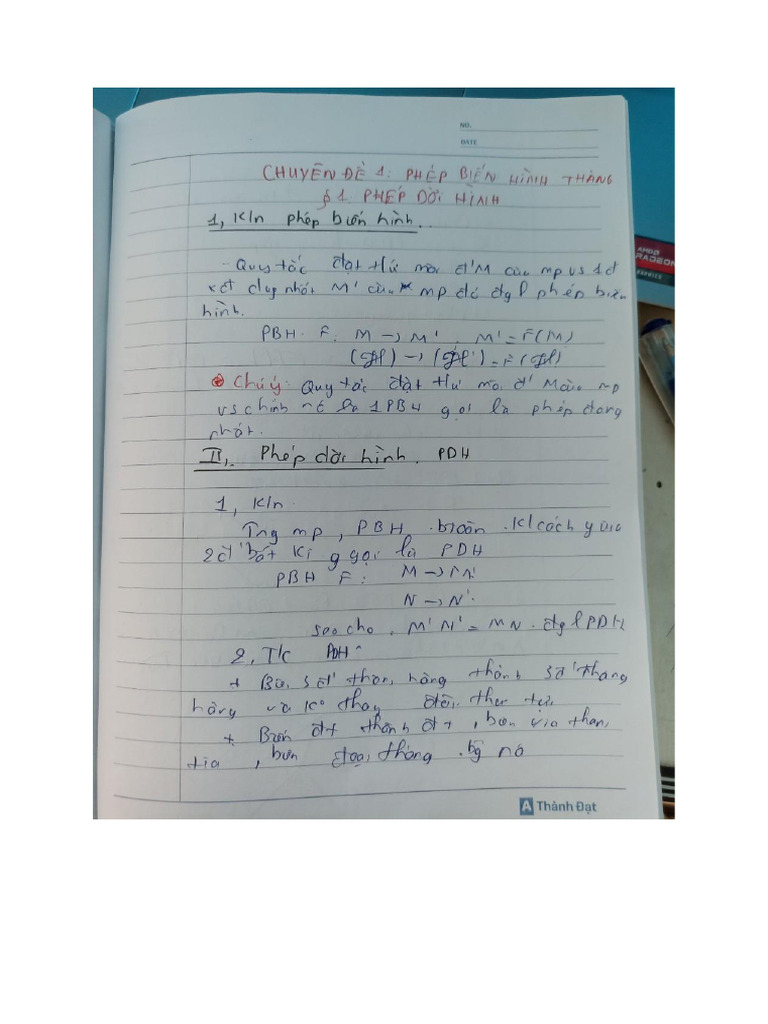 NO.
DATE
CHUYÊN ĐỀ 1: PHÉP BIẾN HÌNH THẲNG
§1. PHÉP DỜI HÌNH
1, K/n phép biến hình.
- Quy tắc đặt tứ mỗi đ' M của mp vs 1 đ'
xđ duy nhất M' của mp đó đgl phép biến
hình.
PBH F: M → M', M' = F(M)
(H) → (H') = F(H)
Chú ý: Quy tắc đặt tứ mỗi đ' M của mp
vs chính nó là 1 PBH gọi là phép đồng
nhất.
II, Phép dời hình. PDH
1, K/n.
Tng mp, PBH bảo toàn K/cách giữa
2 đ' bất kì gọi là PDH
PBH F: M → M'
N → N'
sao cho, M'N' = MN. đgl PDH
2, T/c PDH
+ Biến 3 đ' thẳng hàng thành 3 đ' thẳng
hàng và ko thay đổi thứ tự
+ Biến đt thành đt, biến tia thành
tia, biến đoạn thẳng bg nó
AMD
RADEON
GRAPHICS
A Thành Đạt